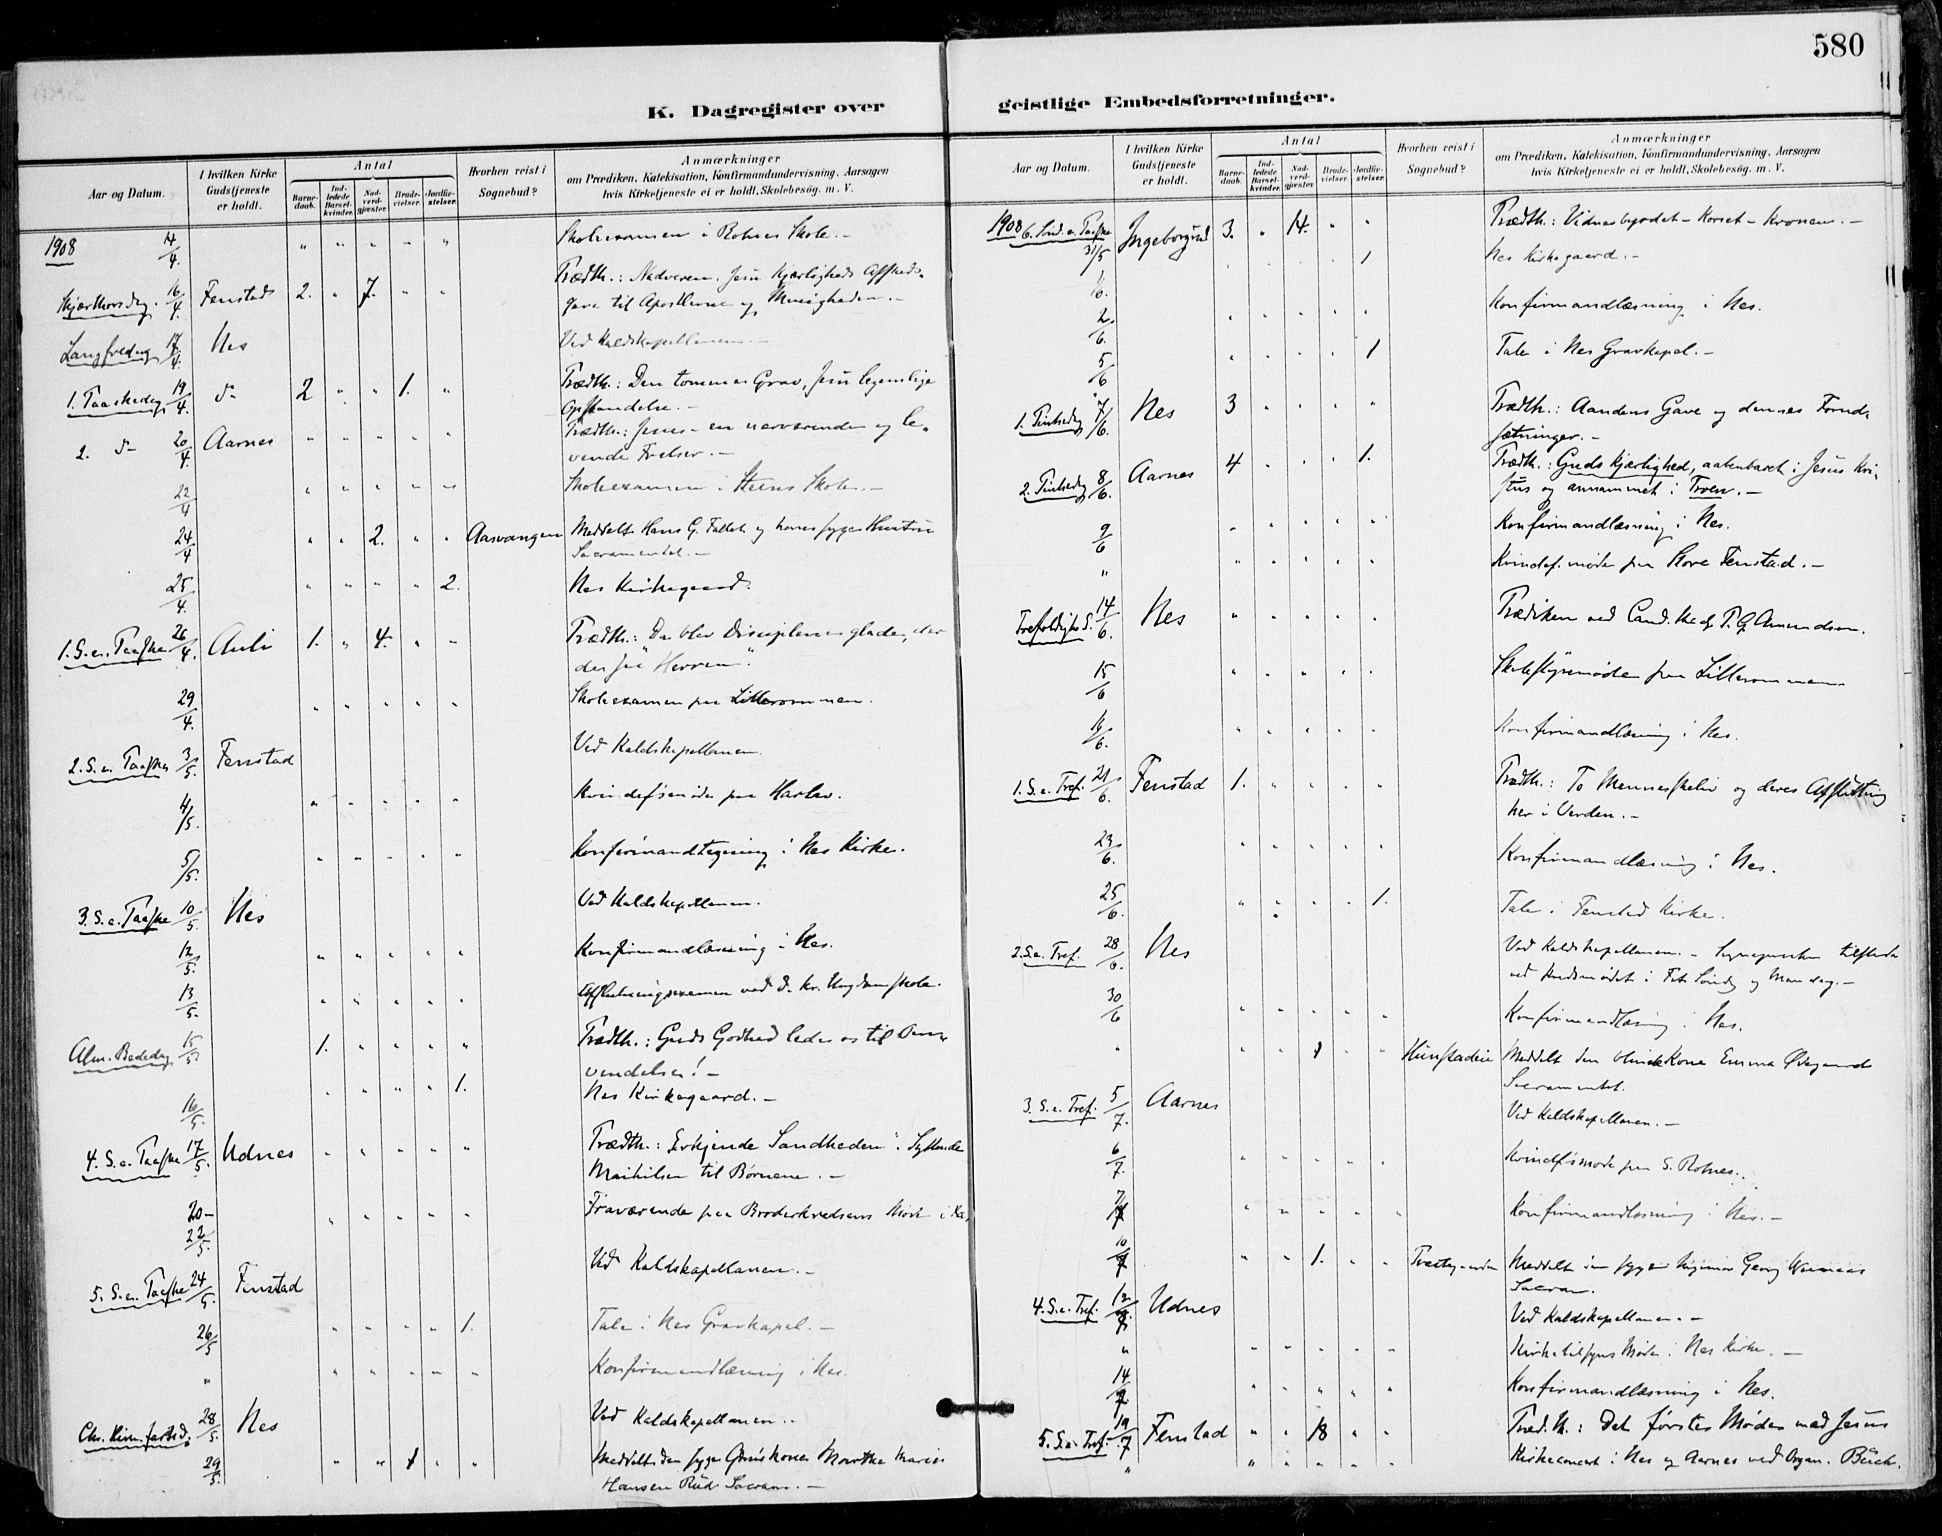 580
K. Dagregister over
geistlige Embedsforretninger.
Aar og Datum.
I hvilken Kirke Gudstjeneste er holdt.
Antal
Barne-daab.
Ind-ledede Barsel-kvinder.
Nad-verd-gjæster.
Brude-vielser.
Jordfæ-stelser.
Hvorhen reist i Sognebud?
Anmærkninger
om Prædiken, Katekisation, Konfirmandundervisning, Aarsagen
hvis Kirketjeneste ei er holdt, Skolebesøg. m. V.
1908 14/4. " " " " " Skoleexamen i Rohnes Skole.-
Skjærthorsdag. 16/4. Fenstad 2. " 7. " " Prædth.: Nadveren. Jesu Kjærligheds Afskeds-
gave til Apostlerne og Menigheden.-
Langfredag 17/4. Nes Ved Kaldskapellanen.-
1. Paaskedag 19/4. do 2 " " 1. " Prædth.: Den tomme Grav, Jesu legemlige
Opstandelse.-
2. do 20/4. Aarnes " " " " " Prædth.: Jesus - en nærværende og le-
vende Frelser.-
22/4 " " " " " Skoleexamen i Steens Skole.-
24/4 " " 2. " " Aasvangen Meddelt Hans G. og hans syge Hustru
Sacramentet.-
25/4. " " " " 2. Nes Kirkegaard.
1. S. e. Paaske 26/4. Auli 1. " 4. " " Prædth.: "Da blev Disciplene glade, der
de saa Herren".
29/4. " " " " " Skoleexamen paa Lillerommen.
2. S. e. Paaske 3/5. Fenstad Ved Kaldskapellanen.
4/5. " " " " " Kvindefsmøde paa Harlev.
5/5. " " " " " Konfirmandtegning i Nes Kirke.
3. S. e. Paaske 10/5. Nes Ved Kaldskapellanen.
12/5. " " " " " Konfirmandlæsning i Nes.
13/5. " " " " " Afslutningsexamen ved d. kr. Ungdomsskole.
Alm. Bededag 15/5. 1. " " " " Prædth.: Guds Godhed leder os til Om-
vendelse!-
16/5. " " " " 1. Nes Kirkegaard.-
4. S. e. Paaske 17/5. Udnes " " " " " Prædth.: "Erkjende Sandheden".
til Børnene.-
20-22/5. " " " " " Fraværende paa Broderkredsens Møde i
5. S. e. Paaske 24/5. Fenstad Ved Kaldskapellanen.-
26/5 " " " " 1. Tale i Nes Gravkapel.-
" " " " " " Konfirmandlæsning i Nes.
Chr. Himmelfartsd. 28/5. Nes Ved Kaldskapellanen.-
29/5. " " 1 " " Meddelt den syge Marthe Marie
Hansen Rud Sacram.-
Aar og Datum.
I hvilken Kirke Gudstjeneste er holdt.
Antal
Barne-daab.
Ind-ledede Barsel-kvinder.
Nad-verd-gjæster.
Brude-vielser.
Jordfæ-stelser.
Hvorhen reist i Sognebud?
Anmærkninger
om Prædiken, Katekisation, Konfirmandundervisning, Aarsagen
hvis Kirketjeneste ei er holdt, Skolebesøg. m. V.
1908 6. Sønd. e. Paaske 31/5 Ingeborgrud 3. " 14. " " Prædth.: Vidnesbyrdet - Korset - Kronen.-
1/6. " " " " 1 Nes Kirkegaard.-
2/6. " " " " " Konfirmandlæsning i Nes.
5/6 " " " " 1 Tale i Nes Gravkapel.-
1. Pintsedag 7/6. Nes 3 " " " " Prædth.: Aandens Gave og dennes Forud-
sætninger.-
2. Pintsedag 8/6. Aarnes 4 " " " 1. Prædth.: Guds Kjærlighed, aabenbaret i Jesus Kri-
stus og annammet i Troen.-
9/6 " " " " " Konfirmandlæsning i Nes.
" " " " " " Kvindef. møde paa Store Fenstad.-
Trefoldighs S. 14/6. Nes " " " " " Prædiken ved Cand. theol. P. G. Amundsen.
15/6 " " " " " Skolestyremøde paa Lillerommen
16/6. " " " " " Konfirmandlæsning i Nes.
1. S. e. Tref. 21/6. Fenstad 1. " " " " Prædth.: To Menneskeliv og deres Afslutning
her i Verden.-
23/6. " " " " " Konfirmandlæsning i Nes.
25/6. " " " " 1. Tale i Fenstad Kirke.
2. S. e. Tref. 28/6. Nes Ved Kaldskapellanen.- Sognepresten tilstede
ved Kredsmødet i Fet Søndag og Mandag.-
30/6 " " " " " Konfirmandlæsning i Nes.
" " " 1 " " Hunstadeie Meddelt den blinde Kone Emma Øvegaard
Sacramentet.
3. S. e. Tref. 5/7. Aarnes Ved Kaldskapellanen.-
6/7. " " " " " Kvindefsmøde paa S. Rohnes.
7/7 " " " " " Konfirmandlæsning i Nes.-
10/7 " " 1. " " Meddelt den syge Georg
Sacram.
4. S. e. Tref. 12/7. Udnes Ved Kaldskapellanen.-
" " " " " " Kirketilsyns Møde i Nes Kirke.-
14/7 " " " " " Konfirmandlæsning i Nes.
5. S. e. Tref. 19/7 Fenstad " " 18 " " Præd.th.: Det første Møde med Jesus
" " " " " " Kirkeconcert i Nes og Aarnes ved Organ. Bäck.